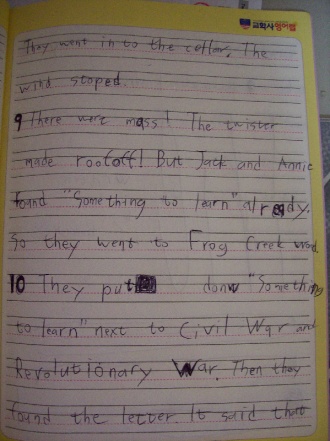 교학사영어쌤
They went in to the cellar. The
wind stoped.
9 There were mass! The twister
made roof off! But Jack and Annie
found "Something to learn" already.
So they went to Frog Creek wood
10 They put donw "Something
to learn" next to Civil War and
Revolutionary War. Then they
found the letter. It said that